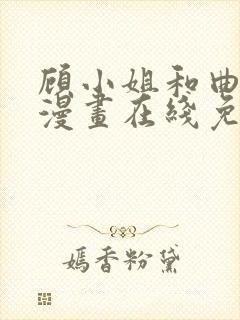 顾小姐和曲
漫畫在綫免
嫣香粉黛